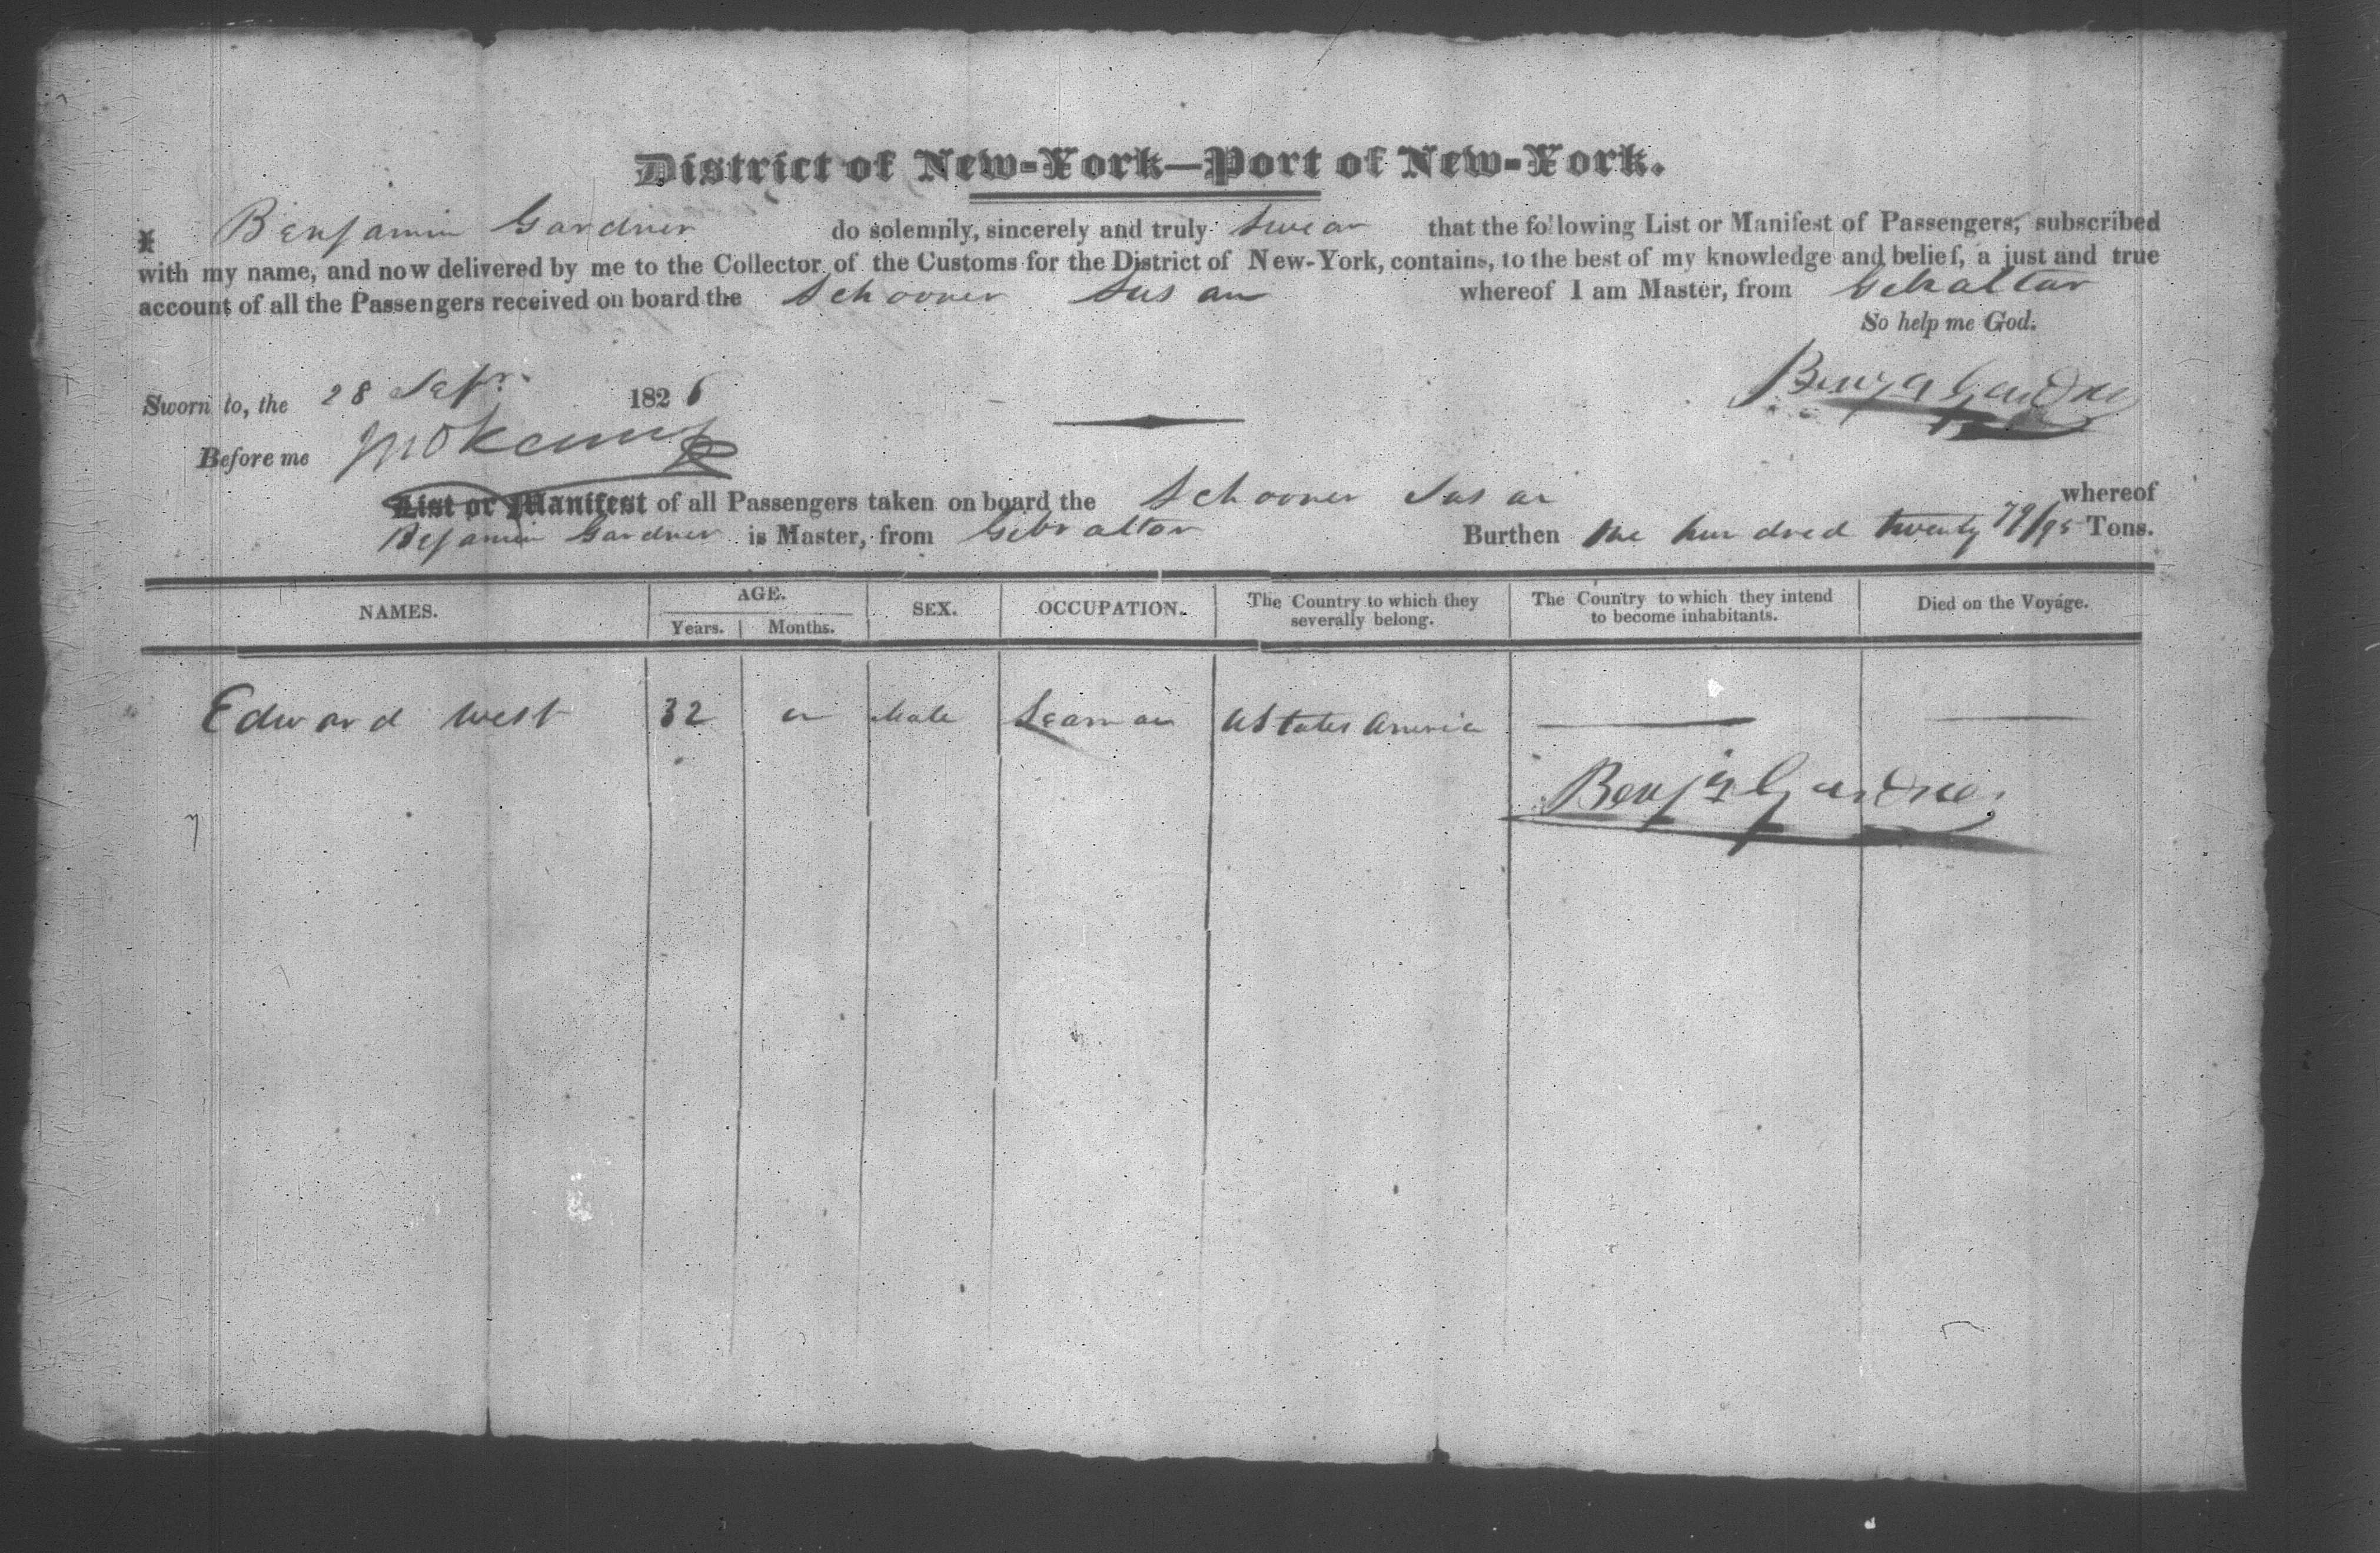 District of New-York—Port of New-York.
I Benjamin Gardner do solemnly, sincerely and truly swear that the following List or Manifest of Passengers, subscribed
with my name, and now delivered by me to the Collector of the Customs for the District of New-York, contains, to the best of my knowledge and belief, a just and true
account of all the Passengers received on board the Schooner Susan whereof I am Master, from Gibraltar
So help me God.
Sworn to, the 28 Sepr. 1826
Benja Gardner
Before me
List or Manifest of all Passengers taken on board the Schooner Susan whereof
Bejamin Gardner is Master, from Gibraltar Burthen One hundred twenty 79/95 Tons.
NAMES. AGE. Years. Months. SEX. OCCUPATION. The Country to which they severally belong. The Country to which they intend to become inhabitants. Died on the Voyage.
Edward West 32 Male Seaman U States America
Benja Gardner